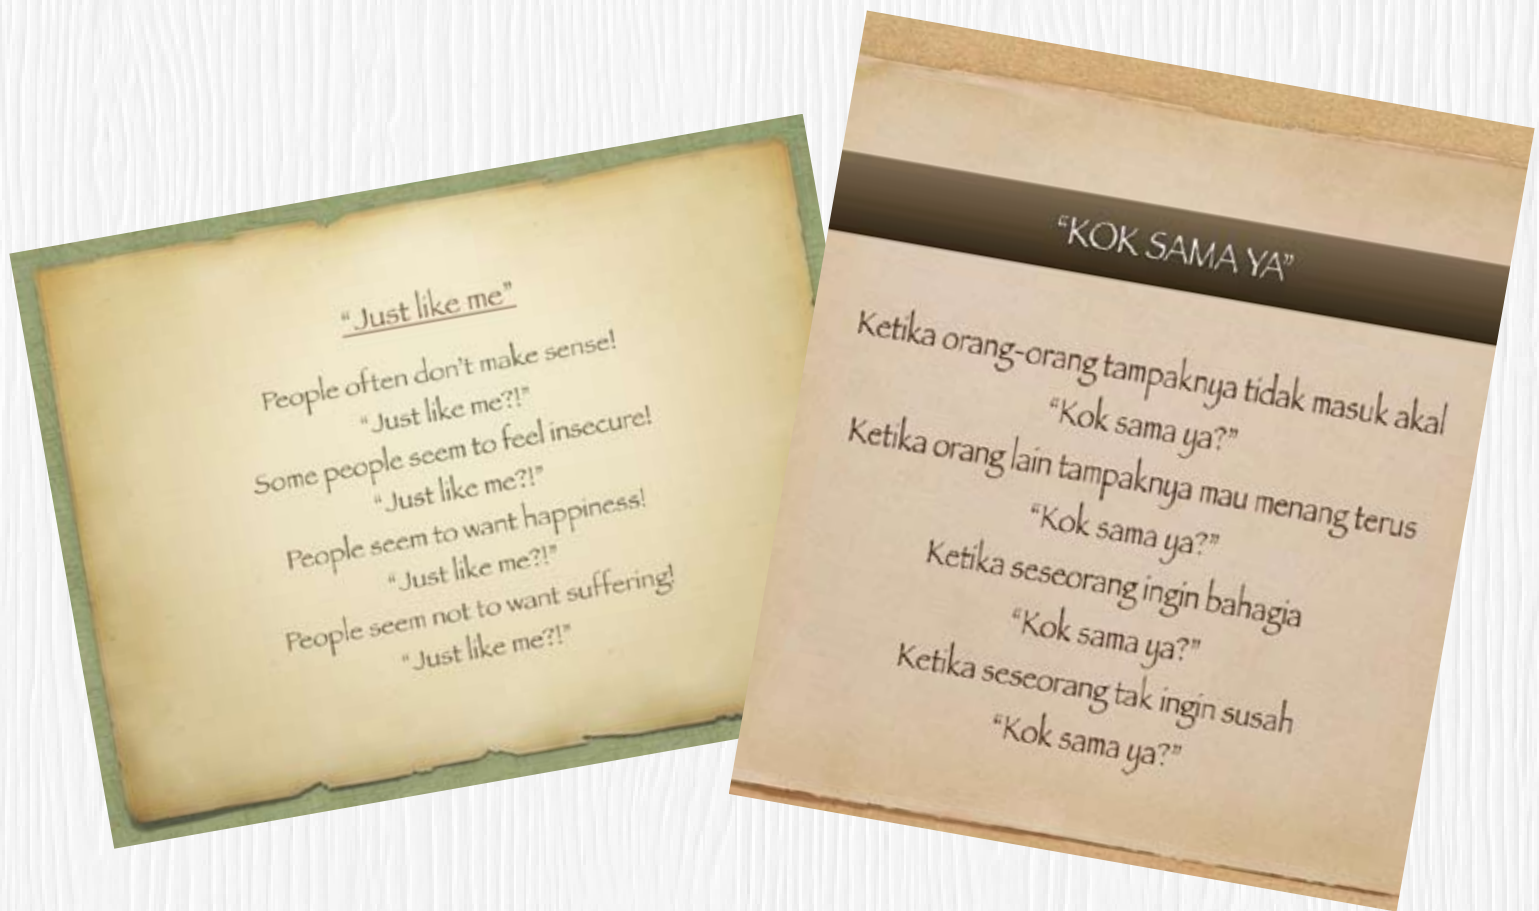 “Just like me”
People often don’t make sense!
“Just like me?!”
Some people seem to feel insecure!
“Just like me?!”
People seem to want happiness!
“Just like me?!”
People seem not to want suffering!
“Just like me?!”
“KOK SAMA YA”
Ketika orang-orang tampaknya tidak masuk akal
“Kok sama ya?”
Ketika orang lain tampaknya mau menang terus
“Kok sama ya?”
Ketika seseorang ingin bahagia
“Kok sama ya?”
Ketika seseorang tak ingin susah
“Kok sama ya?”